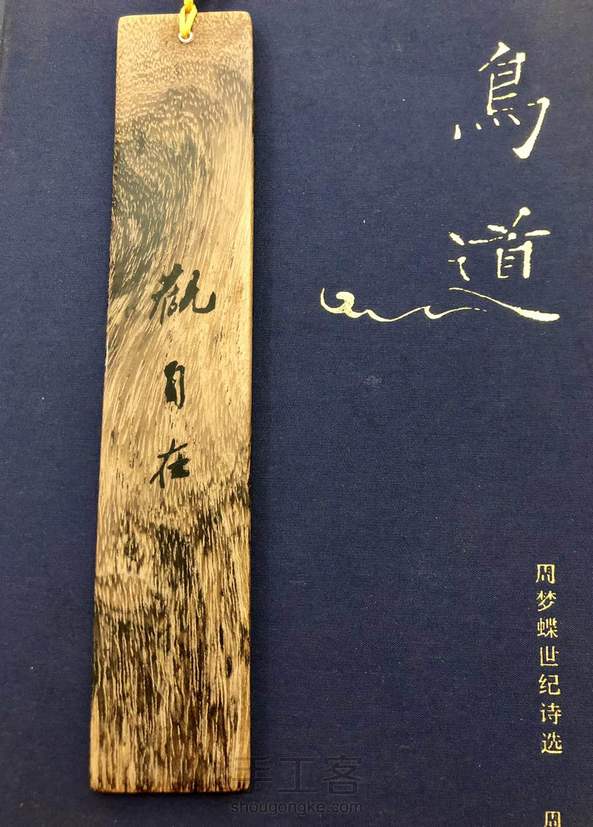 鳥道
周梦蝶世纪诗选
周
觀自在
手工客
shougongke.com